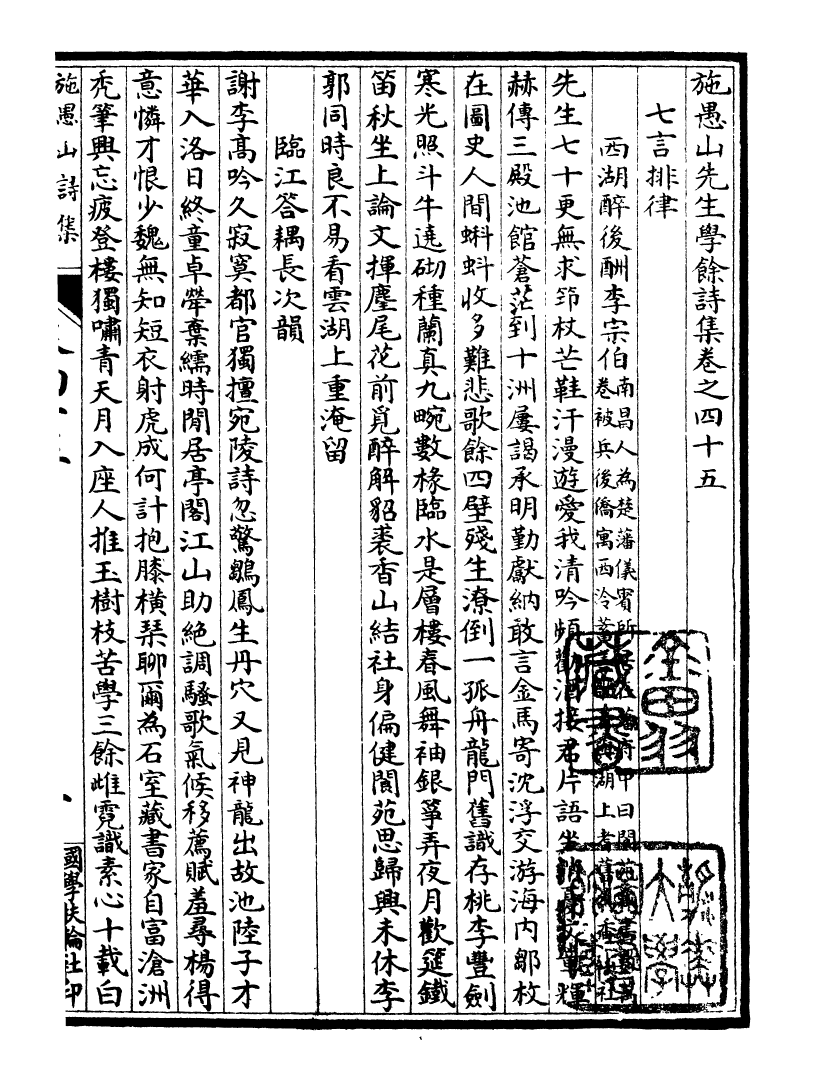 施愚山先生學餘詩集卷之四十五
七言排律
西湖醉後酬李宗伯南昌人為楚藩儀賓所
卷被兵後僑寓西泠
湖上者舊
先生七十更無求笻杖芒鞋汗漫遊愛我清吟頻勸酒接君片語坐
輝
赫傳三殿池館蒼茫到十洲屢謁承明勤獻納敢言金馬寄沈浮交游海內鄒枚
在圖史人間蝌蚪收多難悲歌餘四壁殘生潦倒一孤舟龍門舊識存桃李豐劍
寒光照斗牛遶砌種蘭真九畹數椽臨水是層樓春風舞袖銀箏弄夜月歡筵鐵
笛秋坐上論文揮麈尾花前覓醉解貂裘香山結社身偏健閬苑思歸興未休李
郭同時良不易看雲湖上重淹留
臨江答耦長次韻
謝李高吟久寂寞都官獨擅宛陵詩忽驚鶵鳳生丹穴又見神龍出故池陸子才
華入洛日終童卓犖棄繻時閒居亭閣江山助絕調騷歌氣候移薦賦羞尋楊得
意憐才恨少魏無知短衣射虎成何計抱膝橫琴聊爾為石室藏書家自富滄洲
禿筆興忘疲登樓獨嘯青天月入座人推玉樹枝苦學三餘雌霓識素心十載白
施愚山詩集
國學扶輪社印